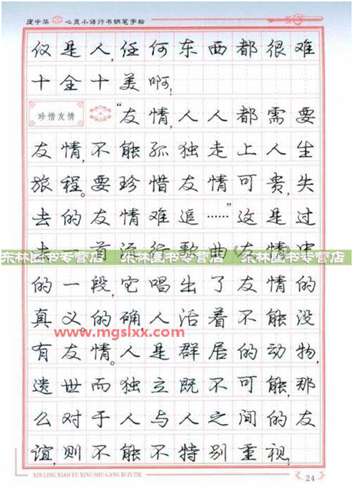 庞中华 心灵小语行书钢笔字帖
仅是人,任何东西都很难
十全十美啊!
珍惜友情 “友情,人人都需要
友情,不能孤独走上人生
旅程。要珍惜友情可贵,失
去的友情难追……”这是过
去一首流行歌曲《友情》中
东林图书专营店 东林图书专营店 东林图书专营店
的一段,它唱出了友情的
真义的确人活着不能没
www.mgslxx.com
有友情。人是群居的动物,
遗世而独立既不可能,那
么对于人与人之间的友
谊,则不能不特别重视,
24